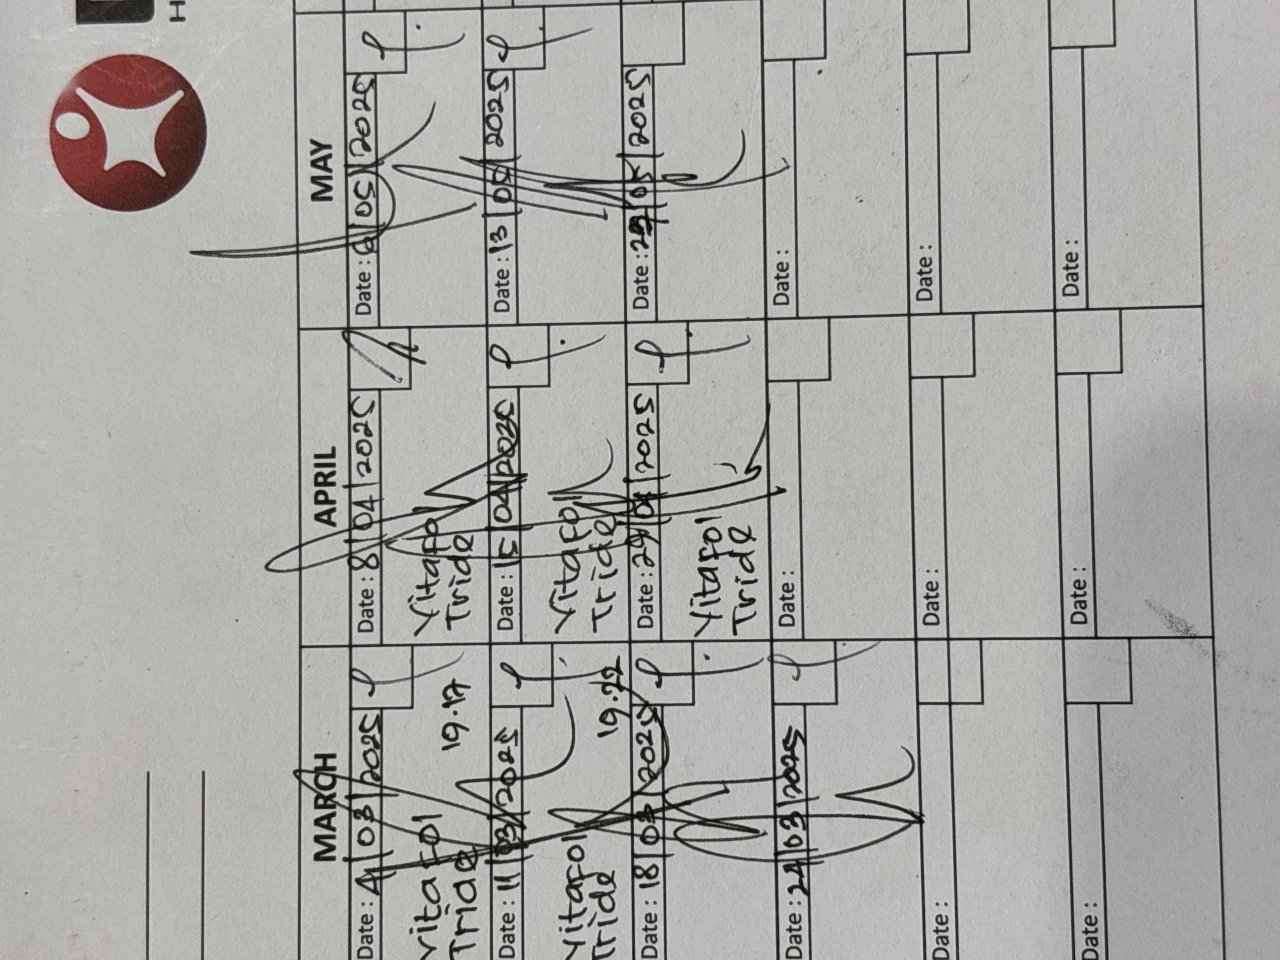 MARCH
Date : 4/03/2025
Vitafol
Tride
19.17
Date : 11/03/2025
Vitafol
Tride
19.22
Date : 18/03/2025
Date : 24/03/2025
Date :
Date :
APRIL
Date : 8/04/2025
Vitafol
Tride
Date : 15/04/2025
Vitafol
Tride
Date : 29/04/2025
Vitafol
Tride
Date :
Date :
Date :
MAY
Date : 6/05/2025
Date : 13/05/2025
Date : 29/05/2025
Date :
Date :
Date :